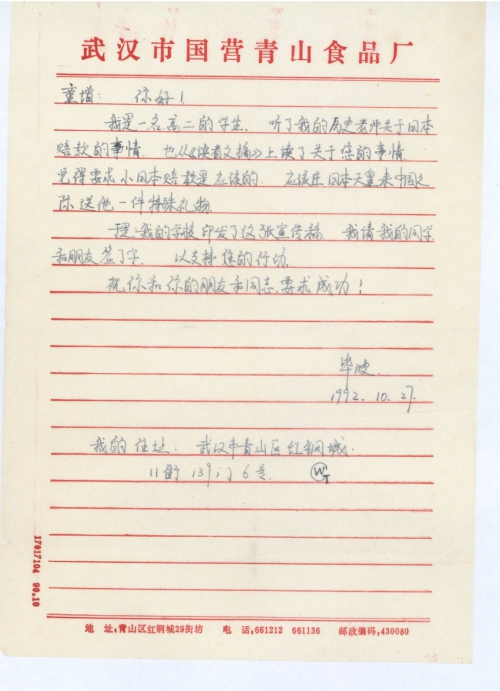 武汉市国营青山食品厂
童增： 你好！
我是一名高二的学生. 听了我的历史老师关于日本
赔款的事情. 也从《读者文摘》上读了关于您的事情.
觉得要求小日本赔款是应该的. 应该在日本天皇来中国之
际送他一件特殊礼物.
我的学校印发了这张宣传稿. 我请我的同学
和朋友签了字. 以支持您的行动.
祝你和你的朋友和同志.要求成功！
毕波.
1992. 10. 27.
我的住址： 武汉市青山区红钢城.
11街 139门 6号. WT
17017104 90.10
地 址:青山区红钢城29街坊 电 话:661212 661136 邮政编码:430080